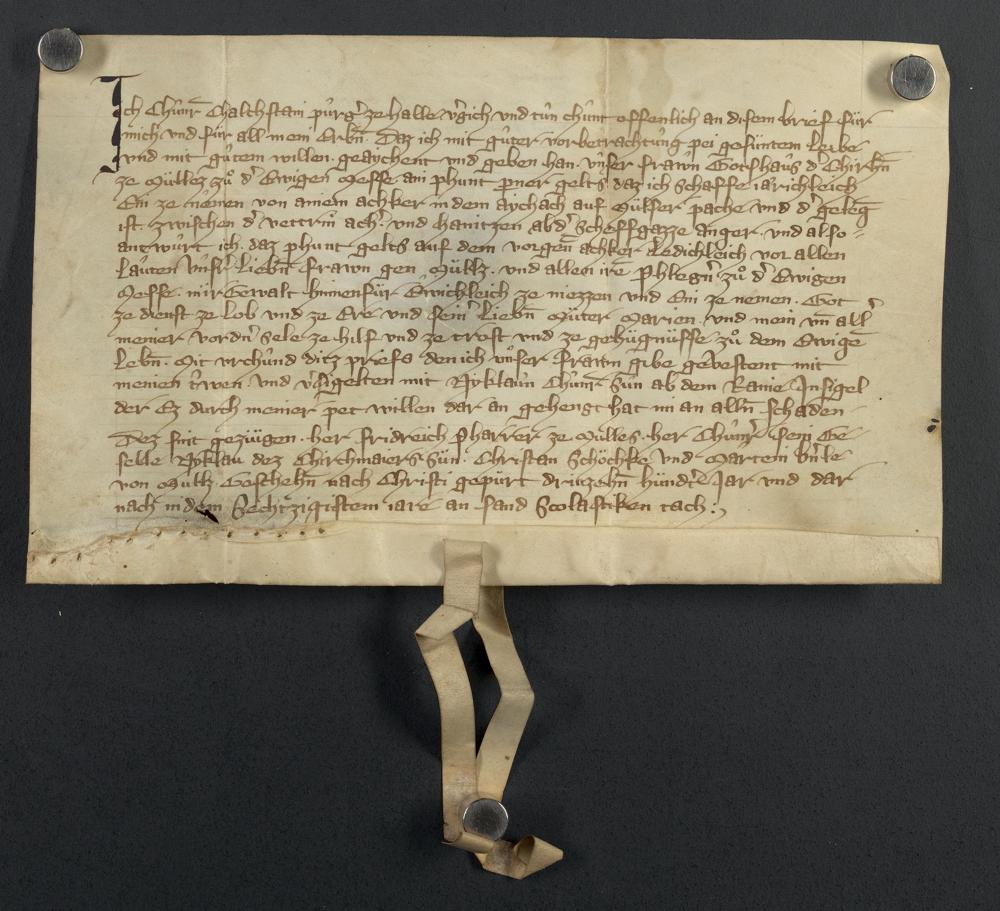 Ich Chunr̄ Chalchstain purg̓ ze halle v̓gich vnd tůn chunt offenlich an disem brief für
mich vnd für all mein Erbn̄. Daz ich mit gůter vorbetrachtůng pei gesuntem leibe
vnd mit gůtem willen. geaychent vnd geben han. Vnser frawn Gotshaus d̓ Chirhn̄
ze Müllez zů d̓ Ewigen Messe ain phunt p̲ner gelts daz ich schaffe iarichleich
Ein ze nemen von ainem achker in dem aychach auf Mülser pache vnd d̓ geleḡ
ist. zwischen d̓ vettrin̄ ach̓. vnd hanitzen ab d̓ Scheffgazze anger. vnd also
antzwurt ich. daz phunt gelts auf dem vorgen̄ achker Ledichleich vor allen
Läuten Vnsr̓ Liebn̄ frawn gen Müllz. vnd allen irē Phlegn̓ zů d̓ Ewigen
Messe. mir Gewalt hinnenfür Ewichleich ze niezzen vnd Ein ze nemen. Got
ze dienst ze lob vnd ze Ere vnd sein̓ Liebn̄ Můter Marien. vnd mein vn̄ all̓
meiner vordn̓ sele ze hilf vnd ze trost vnd ze gehügnüsse zů dem Ewigē
Lebn̄. Mit vrchůnd ditz priefs den ich vnser frawn gibe geuestent mit
meinen trwen vnd v̓sigelten mit Nyklaus Chunr̄ Sun ab dem Raine Insigel
der Ez durch meiner pet willen dar an gehengt hat im an alln̄ schaden
Dez sint gezüigen. her fridreich Pharrer ze Mulles. her Chunr̄ sein Ge
selle Nyklau dez Chirchmaiers sůn. Christan Schöchke vnd Martein
von Müllz Geschehn̄ nach Christi gepurt driuzehn̄ hundr̓t Jar vnd dar
nach in dem Sechtzigistem iare an sand Scolastiken tach.